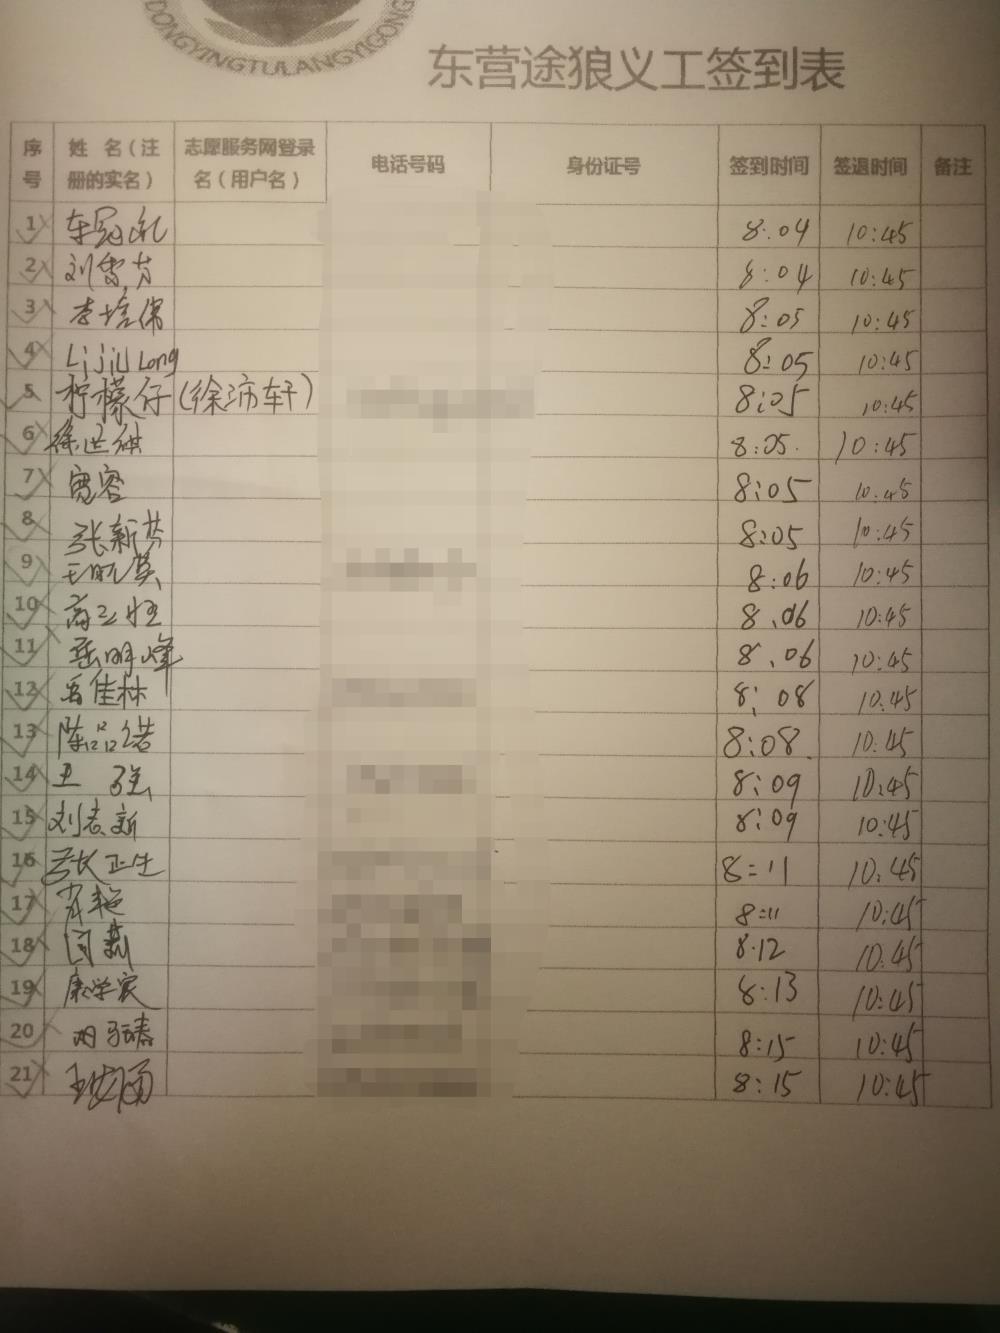 DONGYINGTULANGYIGONG
东营途狼义工签到表
序号 姓 名（注册的实名） 志愿服务网登录名（用户名） 电话号码 身份证号 签到时间 签退时间 备注
1 8:04 10:45
2 刘雪芳 8:04 10:45
3 李培伟 8:05 10:45
4 8:05 10:45
5 柠檬仔(徐沛轩) 8:05 10:45
6 8:05. 10:45
7 宽容 8:05 10:45
8 张新芬 8:05 10:45
9 8:06 10:45
10 8.06 10:45
11 岳明峰 8.06 10:45
12 佳林 8:08 10:45
13 陈品诺 8:08. 10:45
14 王强 8:09 10:45
15 刘志新 8:09 10:45
16 张正生 8:11 10:45
17 肖艳 8:11 10:45
18 闫燕 8:12 10:45
19 康学家 8:13 10:45
20 8:15 10:45
21 8:15 10:45